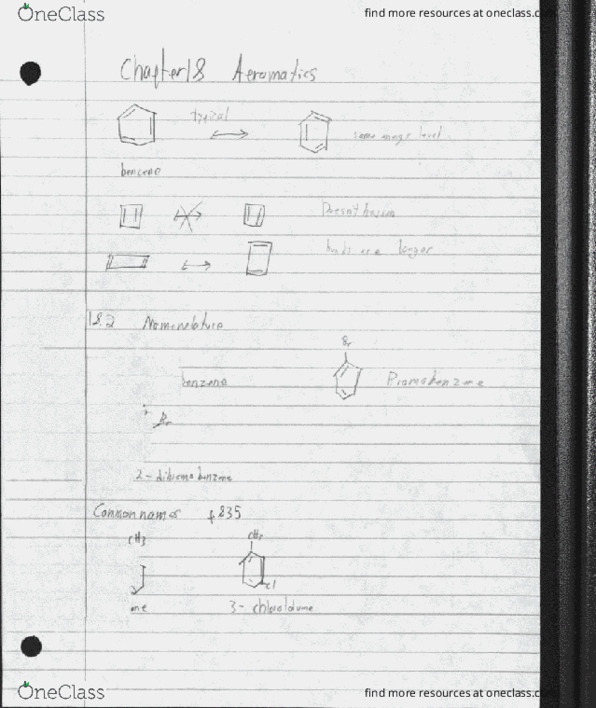 OneClass find more resources at oneclass.com
Chapter 18 Aeromatics
typical
same energy level
benzene
Doesn't happen
longer
18.2 Nomenclature
Br
benzene Bromobenzene
Br
2-dibromobenzene
Common names p 835
CH3 CH3
Cl
ene 3-
OneClass find more resources at oneclass.com